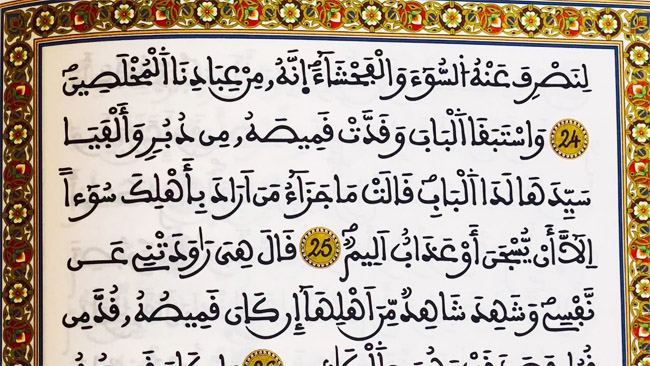 لِنَصْرِفَ عَنْهُ السُّوٓءَ وَالْفَحْشَآءَ إِنَّهُۥ مِنْ عِبَادِنَا الْمُخْلَصِينَ
24 وَاسْتَبَقَا الْبَابَ وَقَدَّتْ قَمِيصَهُۥ مِن دُبُرٍ وَأَلْفَيَا
سَيِّدَهَا لَدَا الْبَابِ قَالَتْ مَا جَزَآءُ مَنَ اَرَادَ بِأَهْلِكَ سُوٓءاً
اِلَّآ أَنْ يُّسْجَنَ أَوْ عَذَابٌ اَلِيمٌ 25 قَالَ هِيَ رَٰوَدَتْنِے عَن
نَّفْسِے وَشَهِدَ شَاهِدٌ مِّنَ اَهْلِهَآ إِن كَانَ قَمِيصُهُۥ قُدَّ مِن